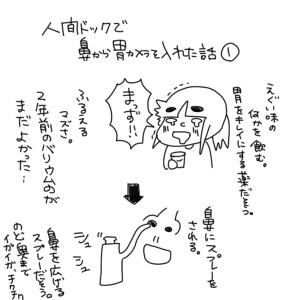 人間ドックで
鼻から胃カメラを入れた話①
えぐい味の
何かを飲む。
胃をキレイにする薬だそう。
まっず!!
ふるえる
マズさ。
2年前のバリウムのが
まだよかった…
鼻にスプレーを
される。
シュ
シュ
鼻を広げる
スプレーだそう。
のど奥まで
イガイガ、チクチク